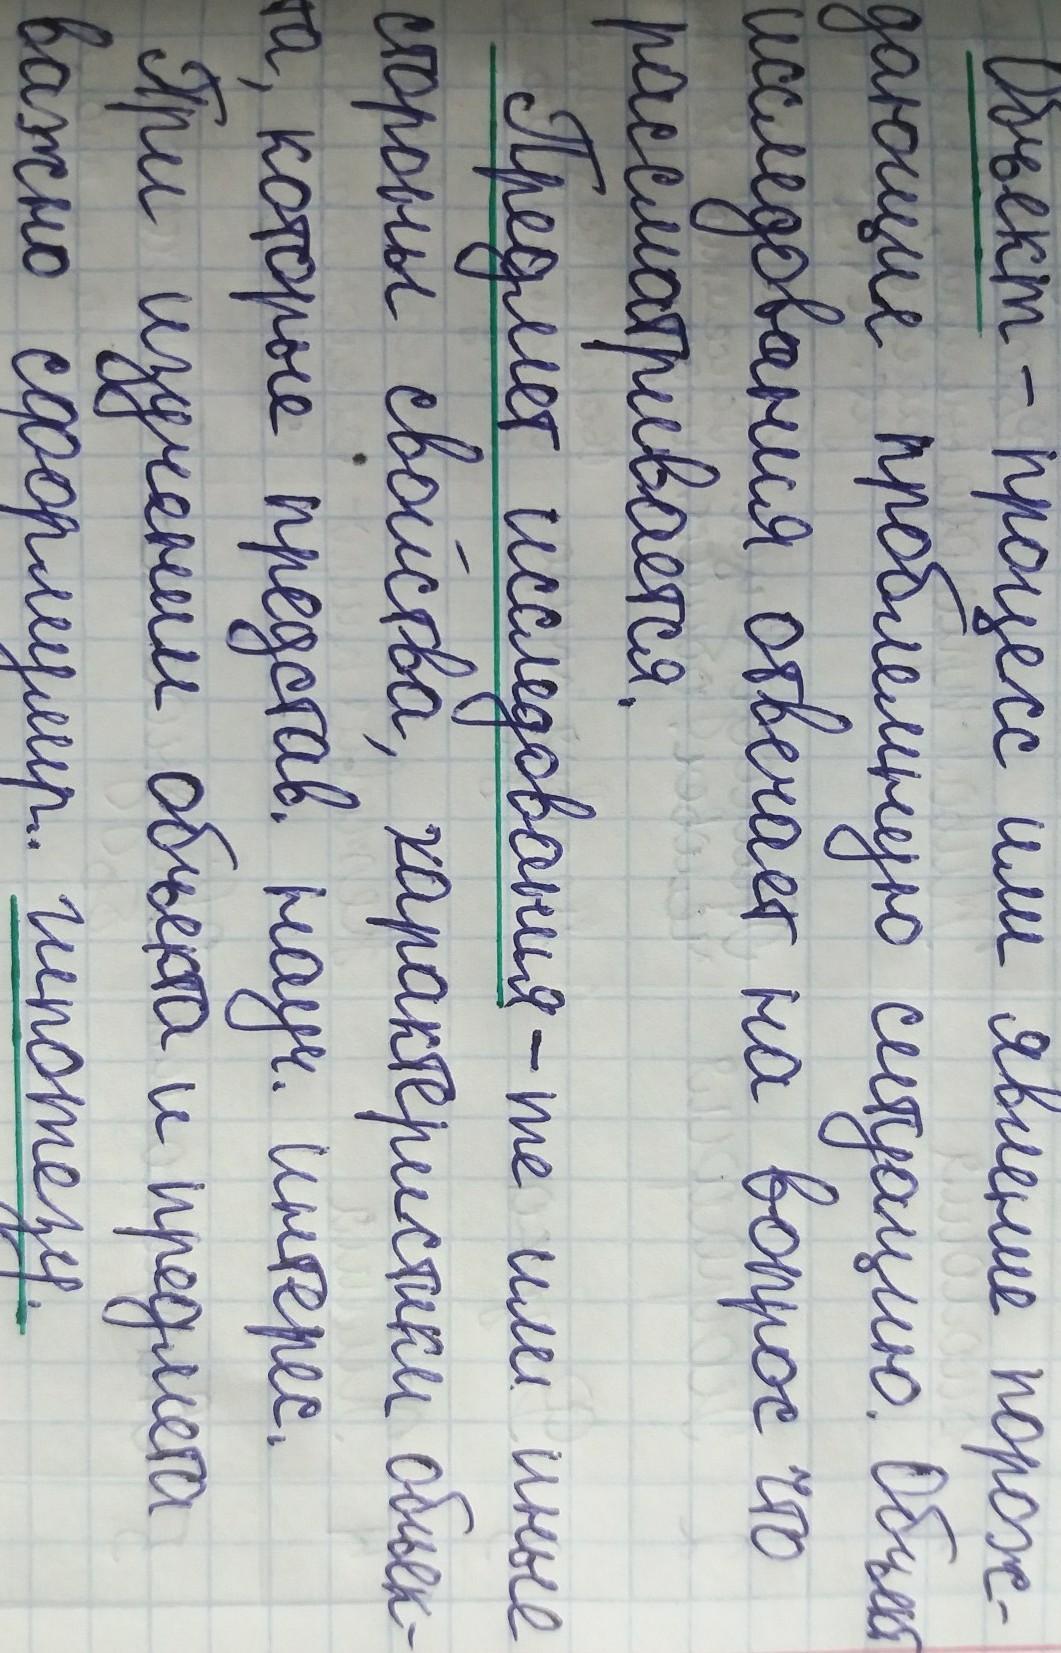 Объект - процесс или явление порож-
дающие проблемную ситуацию. Объект
исследования отвечает на вопрос что
рассматривается.
Предмет исследования - те или иные
стороны свойства, характеристики объек-
та, которые представ. науч. интерес.
При изучении объекта и предмета
важно сформулир. гипотезу.